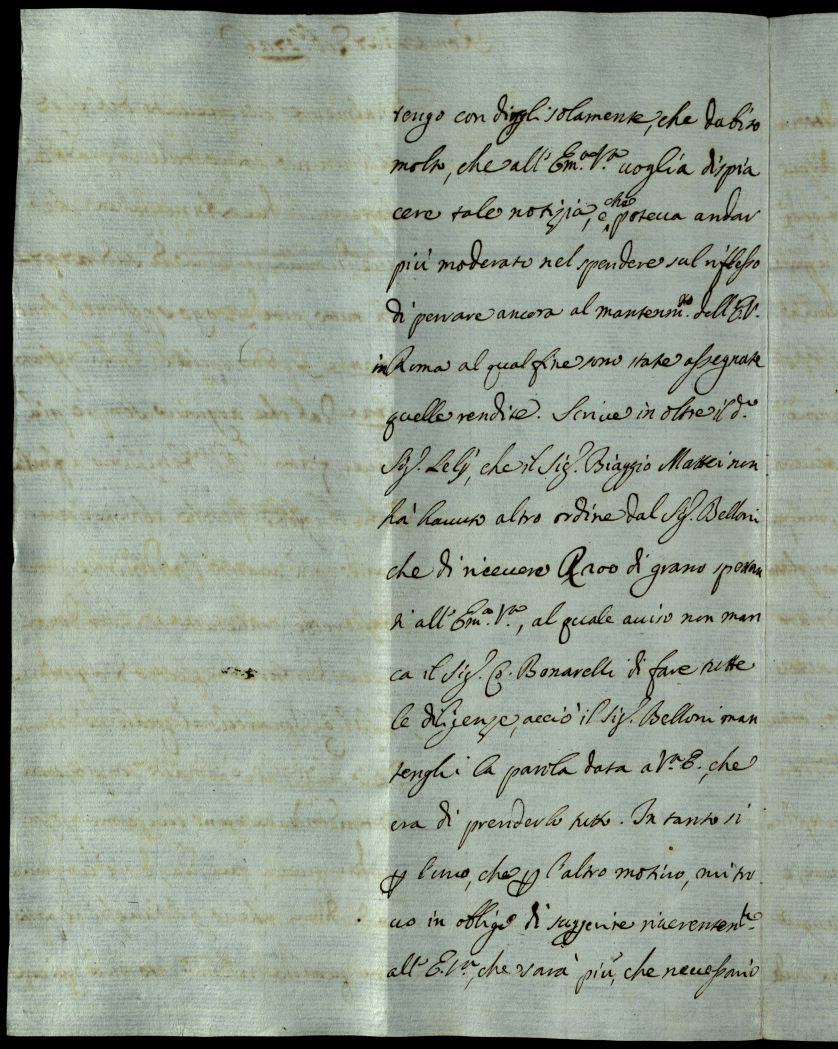 tengo con dirgli solamente, che dubito
molto, che all' Em.ª V.ª voglia dispia
cere tale notizia, e che poteva andar
più moderato nel spendere sul riflesso
di pensare ancora al mantenim.to dell' E.V.
in Roma al qual fine sono state assegnate
quelle rendite. Scrive in oltre il d.º
Sig.r Lelj, che il Sig.r Biaggio Mattei non
hà havuto altro ordine dal Sig.r Belloni
che di ricevere R 200 di grano spettan
ti all' Em.ª V.ª, al quale aviso non man
ca il Sig.r Co. Bonarelli di fare tutte
le diligenze, acciò il Sig.r Belloni man
tenghi la parola data a V.ª E., che
era di prenderlo tutto. In tanto si
p l'uno, che p l'altro motivo, mi tro
vo in obligo di suggerire riverentem.te
all' E.V.ª, che sarà più, che necessario